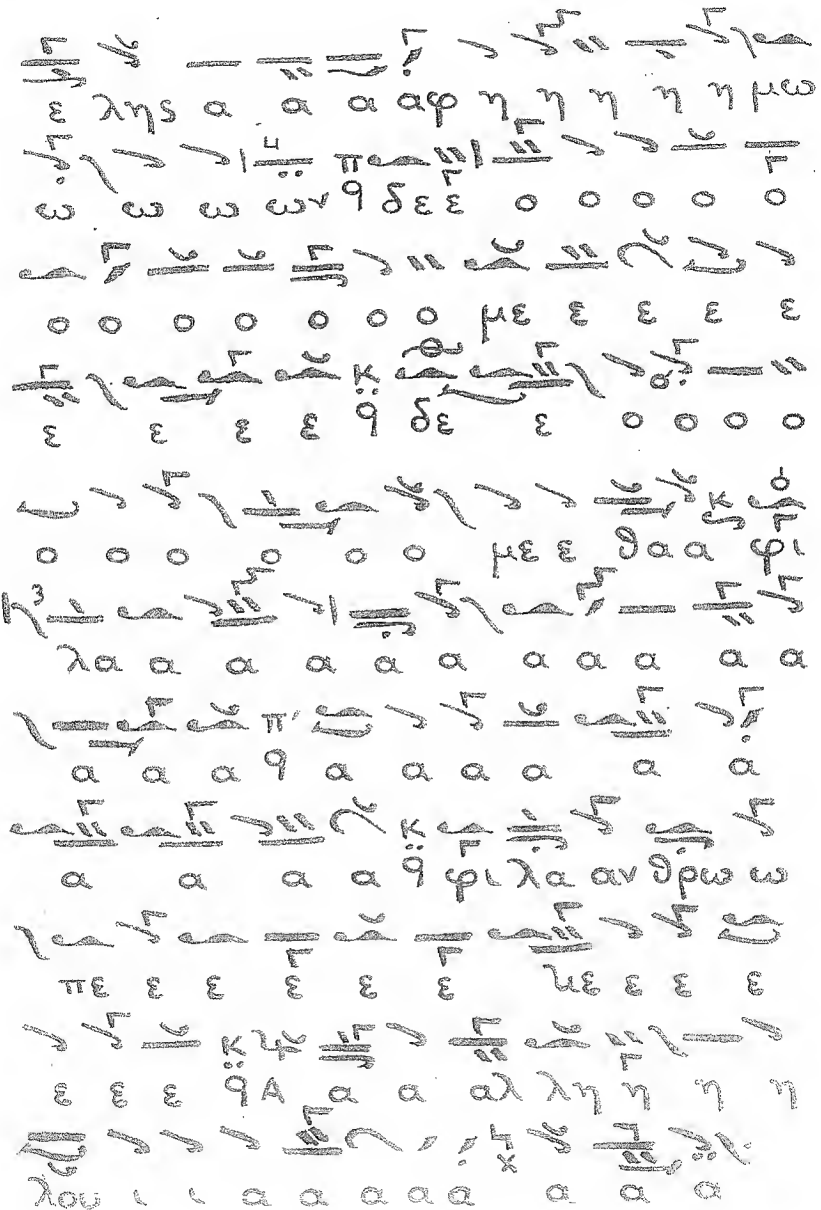 ε λης α α α αφ η η η η η μω
ω ω ω ων π q δε ε ο ο ο ο ο
ο ο ο ο ο ο ο με ε ε ε ε
ε ε ε ε κ q δε ε ο ο ο ο
ο ο ο ο ο ο με ε θα α κ φι
λα α α α α α α α α α α
α α α π q α α α α α α
α α α α κ q φι λα αν θρω ω
πε ε ε ε ε ε κε ε ε ε
ε ε ε κ q Α α α αλ λη η η η
λου ι ι α α α α α α α α